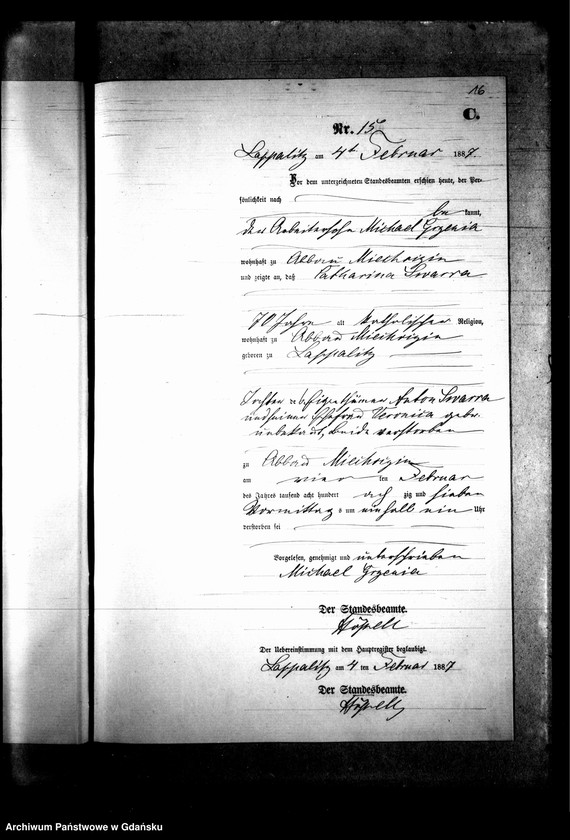 16
C.
Nr. 15
Lappalitz am 4t Februar 1887.
Vor dem unterzeichneten Standesbeamten erschien heute, der Per-
sönlichkeit nach
be kannt,
der Arbeitersohn Michael
wohnhaft zu Abbau
und zeigte an, daß Catharina
70 Jahre alt katholischer Religion,
wohnhaft zu Abbau
geboren zu Lappalitz
Tochter des Eigenthümer Anton
und seiner Ehefrau Veronica gebo.
unbekant, beide verstorben
zu Abbau
am vier ten Februar
des Jahres tausend acht hundert acht zig und sieben
Vormittag s um ein halb ein Uhr
verstorben sei
Vorgelesen, genehmigt und unterschrieben
Michael
Der Standesbeamte.
Der Uebereinstimmung mit dem Hauptregister beglaubigt.
Lappalitz am 4 ten Februar 1887
Der Standesbeamte.
Archiwum Państwowe w Gdańsku